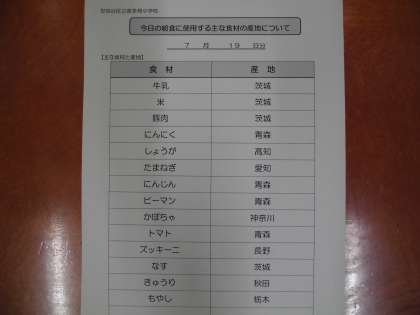 今日の給食に使用する主な食材の産地について
7 月 19 日分
【主な食材と産地】
食 材 産 地
牛乳 茨城
米 茨城
豚肉 茨城
にんにく 青森
しょうが 高知
たまねぎ 愛知
にんじん 青森
ピーマン 青森
かぼちゃ 神奈川
トマト 青森
ズッキーニ 長野
なす 茨城
きゅうり 秋田
もやし 栃木